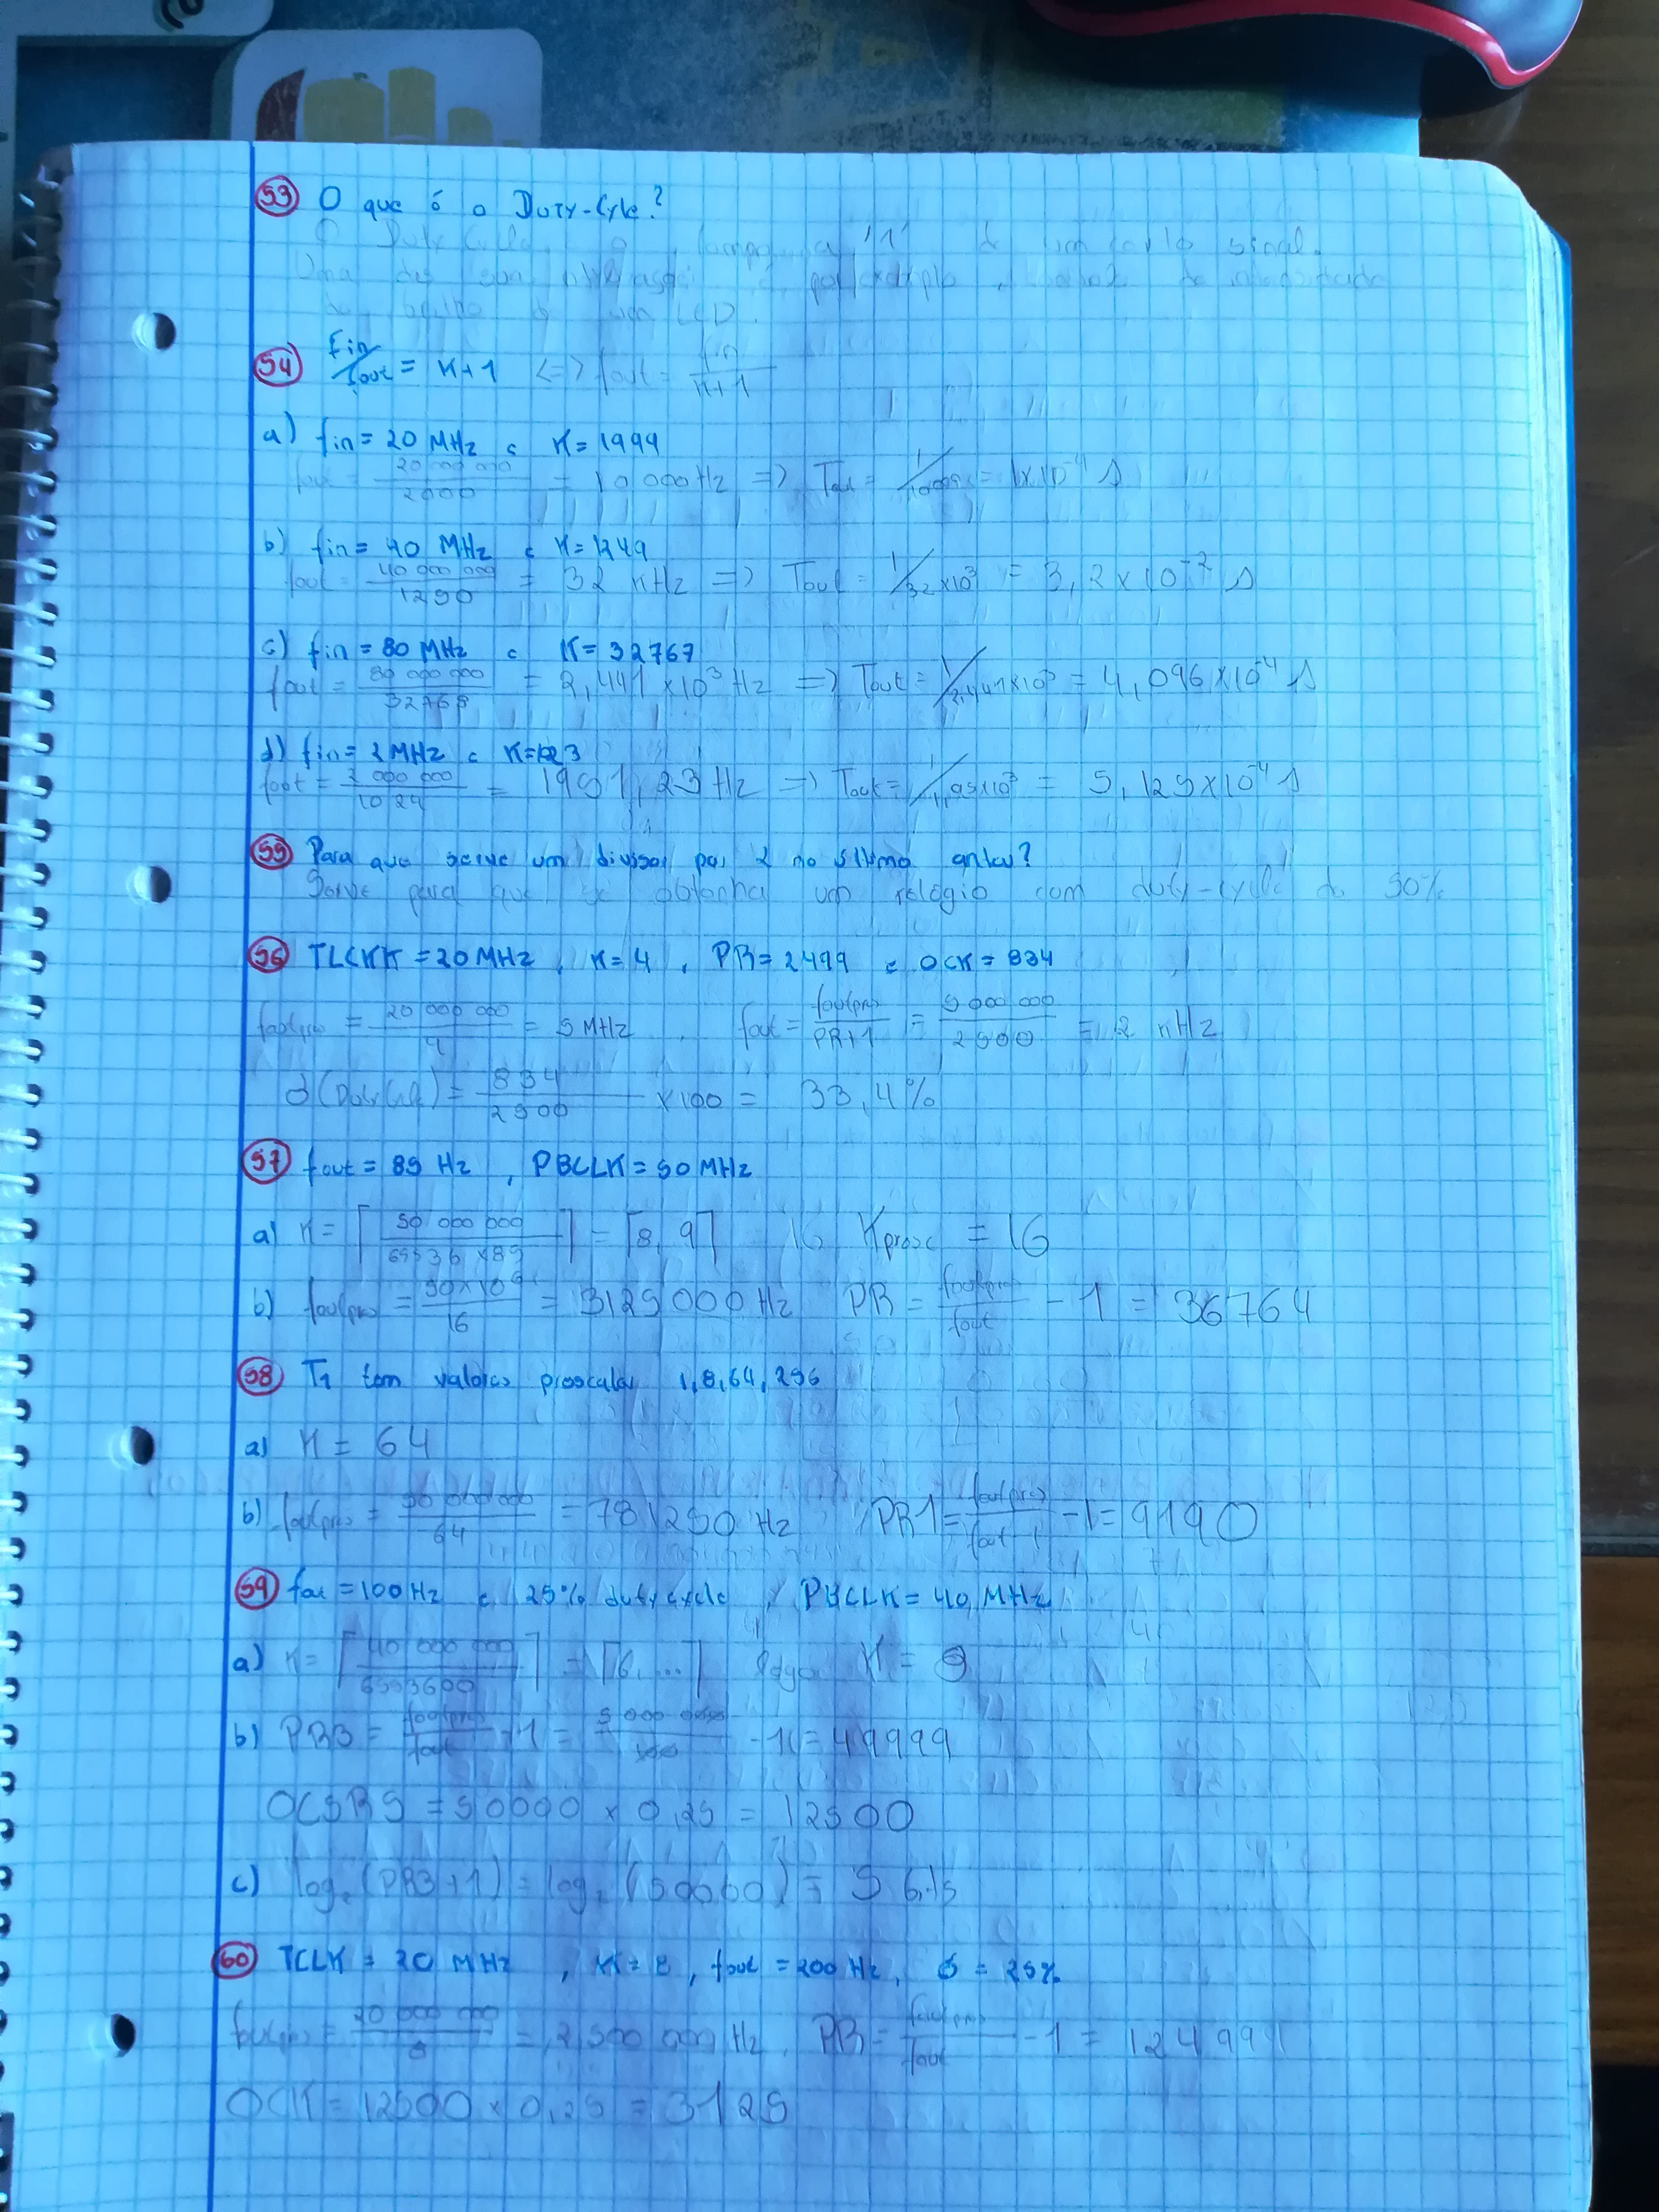 53 O que é o Duty-Cycle?
O Duty Cycle é o tempo a '1' de um sinal.
Uma das suas é, por exemplo, de intensidade
de brilho de um LED.
54 fin/fout = K+1 <=> fout = fin/K+1
a) fin = 20 MHz e K=1999
fout = 20 000 000/2000 = 10 000 Hz => Tout = 1/10000 = 1x10^-4 s
b) fin = 40 MHz e K=1249
fout = 40 000 000/1250 = 32 KHz => Tout = 1/32x10^3 = 3,2x10^-2 s
c) fin = 80 MHz e K=32767
fout = 80 000 000/32768 = 2,441 x10^3 Hz => Tout = 1/2,441x10^3 = 4,096x10^-4 s
d) fin = 2 MHz e K=1023
fout = 2 000 000/1024 = 1951,23 Hz => Tout = 1/1,95x10^3 = 5,125x10^-4 s
55 Para que serve um divisor por 2 no último andar?
Serve para que se obtenha um relógio com duty-cycle de 50%
56 TLCKK = 20 MHz, K=4, PR=2499 e OCK=834
fout(pre) = 20 000 000/4 = 5 MHz, fout = fout(pre)/PR+1 = 5 000 000/2500 = 2 KHz
d(Duty Cycle) = 834/2500 x100 = 33,4%
57 fout = 85 Hz, PBCLK = 50 MHz
a) K = ⌈50 000 000/65536 x85⌉ = ⌈8,9⌉ 16 Kpresc = 16
b) fout(pre) = 50x10^6/16 = 3125 000 Hz PR = fout(pre)/fout - 1 = 36764
58 T1 tem valores prescaler 1,8,64,256
a) K = 64
b) fout(pre) = 50 000 000/64 = 781250 Hz PR1 = fout(pre)/fout - 1 = 9190
59 fout = 100 Hz e 25% duty cycle, PBCLK = 40 MHz
a) K = ⌈40 000 000/6553600⌉ = ⌈6,...⌉ logo K = 8
b) PR3 = fout(pre)/fout - 1 = 5 000 000/100 - 1 = 49999
OC5RS = 50000 x 0,25 = 12500
c) log₂(PR3+1) = log₂(50000) =
60 TCLK = 20 MHz, K=8, fout = 200 Hz, δ = 25%
fout(pre) = 20 000 000/8 = 2 500 000 Hz, PR = fout(pre)/fout - 1 = 12499
OCK = 12500 x 0,25 = 3125